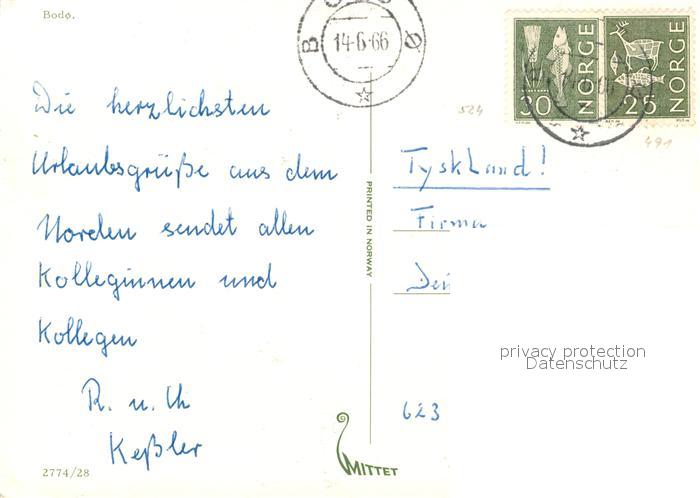 Bodø.
BODØ
14-6-66
30 NORGE
25 NORGE
524
491
Die herzlichsten
Urlaubsgrüße aus dem
Norden sendet allen
Kolleginnen und
Kollegen
R. u. Ch
Keßler
2774/28
PRINTED IN NORWAY
MITTET
Tyskland!
Firma
privacy protection
Datenschutz
623